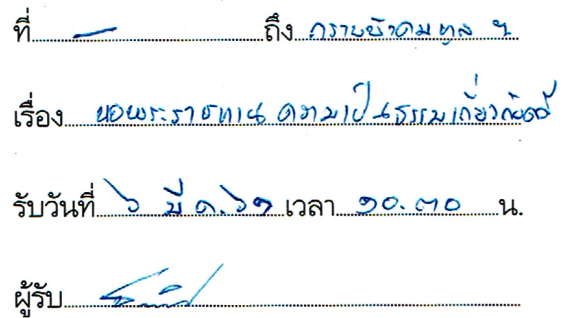 ที่ — ถึง กราบบังคมทูล ฯ
เรื่อง ขอพระราชทานความเป็นธรรมเกี่ยวกับคดี
รับวันที่ ๖ มี ค. ๖๑ เวลา ๑๐.๓๐ น.
ผู้รับ